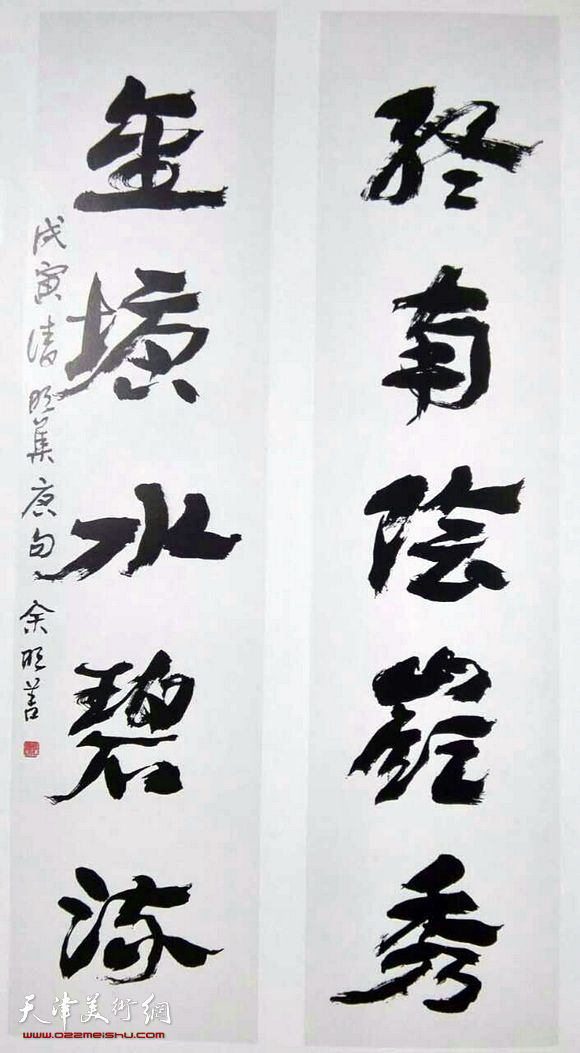 終南陰嶺秀
金壙水碧流
戊寅清明集唐句 余明善
天津美術網
www.022meishu.com